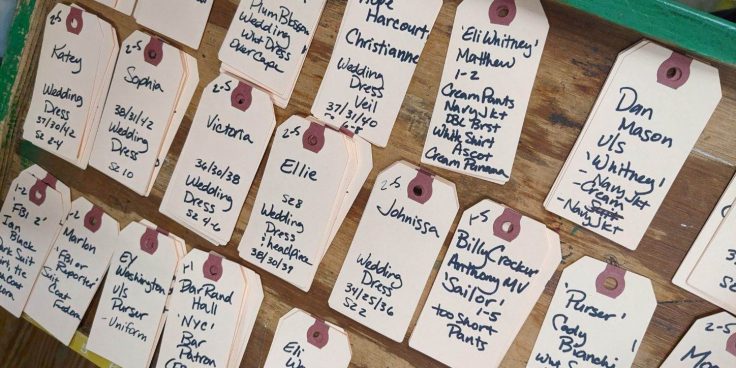 Katey
Wedding
Dress
37/30/42
Sz 2-4
2-5
Sophia
38/31/42
Wedding
Dress
Sz 10
Plum Blossom
Wedding
Wht Dress
Over Cape
Harcourt
Christianne
Wedding
Dress
Veil
37/31/40
'Eli Whitney'
Matthew
1-2
Cream Pants
Navy Jkt
DBL Brst
White Shirt
Ascot
Cream Panama
Dan
Mason
U/S
'Whitney'
- Navy Jkt
- Cream
- Navy Jkt
2-5
Victoria
34/30/38
Wedding
Dress
Sz 4-6
2-5
Ellie
Sz 8
Wedding
Dress
: headpiece
38/30/39
2-5
Johnissa
Wedding
Dress
34/25/36
Sz 2
1-5
Billy Crocker
Anthony MV
'Sailor'
1-5
too short
Pants
'Purser'
Cody
Bianchi
1-2
'FBI 2'
Ian
Black
Dark Suit
1-2
Marlon
'FBI or
Reporter'
Suit,
Coat
Fedora
Ey
Washington
U/S
Purser
- Uniform
Hall
'NYC'
Bar
Patron
Eli
2-5